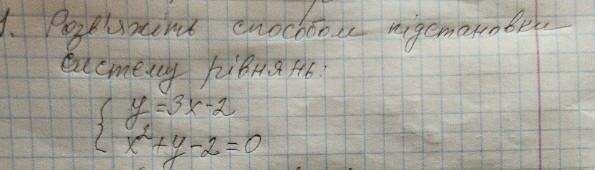 1. Розв'яжіть способом підстановки
систему рівнянь:
y = 3x - 2
x² + y - 2 = 0